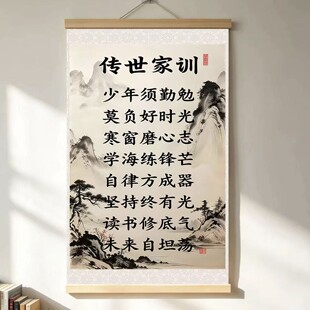 传世家训
少年须勤勉
莫负好时光
寒窗磨心志
学海练锋芒
自律方成器
坚持终有光
读书修底气
未来自坦荡